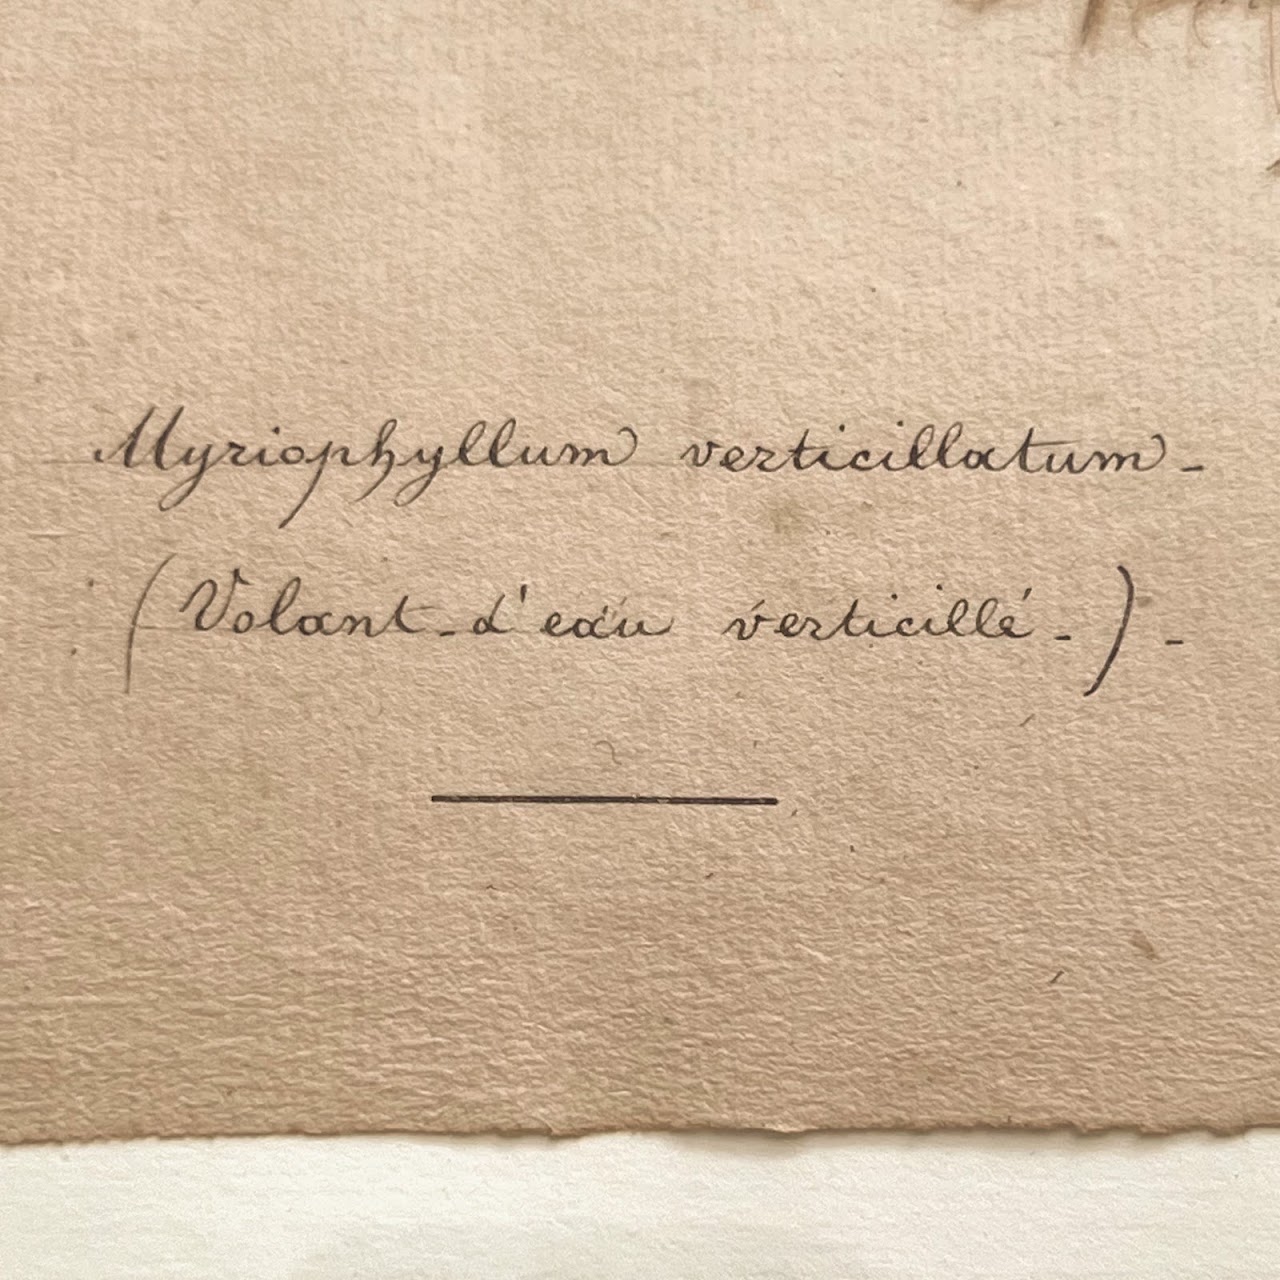 Myriophyllum verticillatum -
(Volant-d'eau verticillé -) -